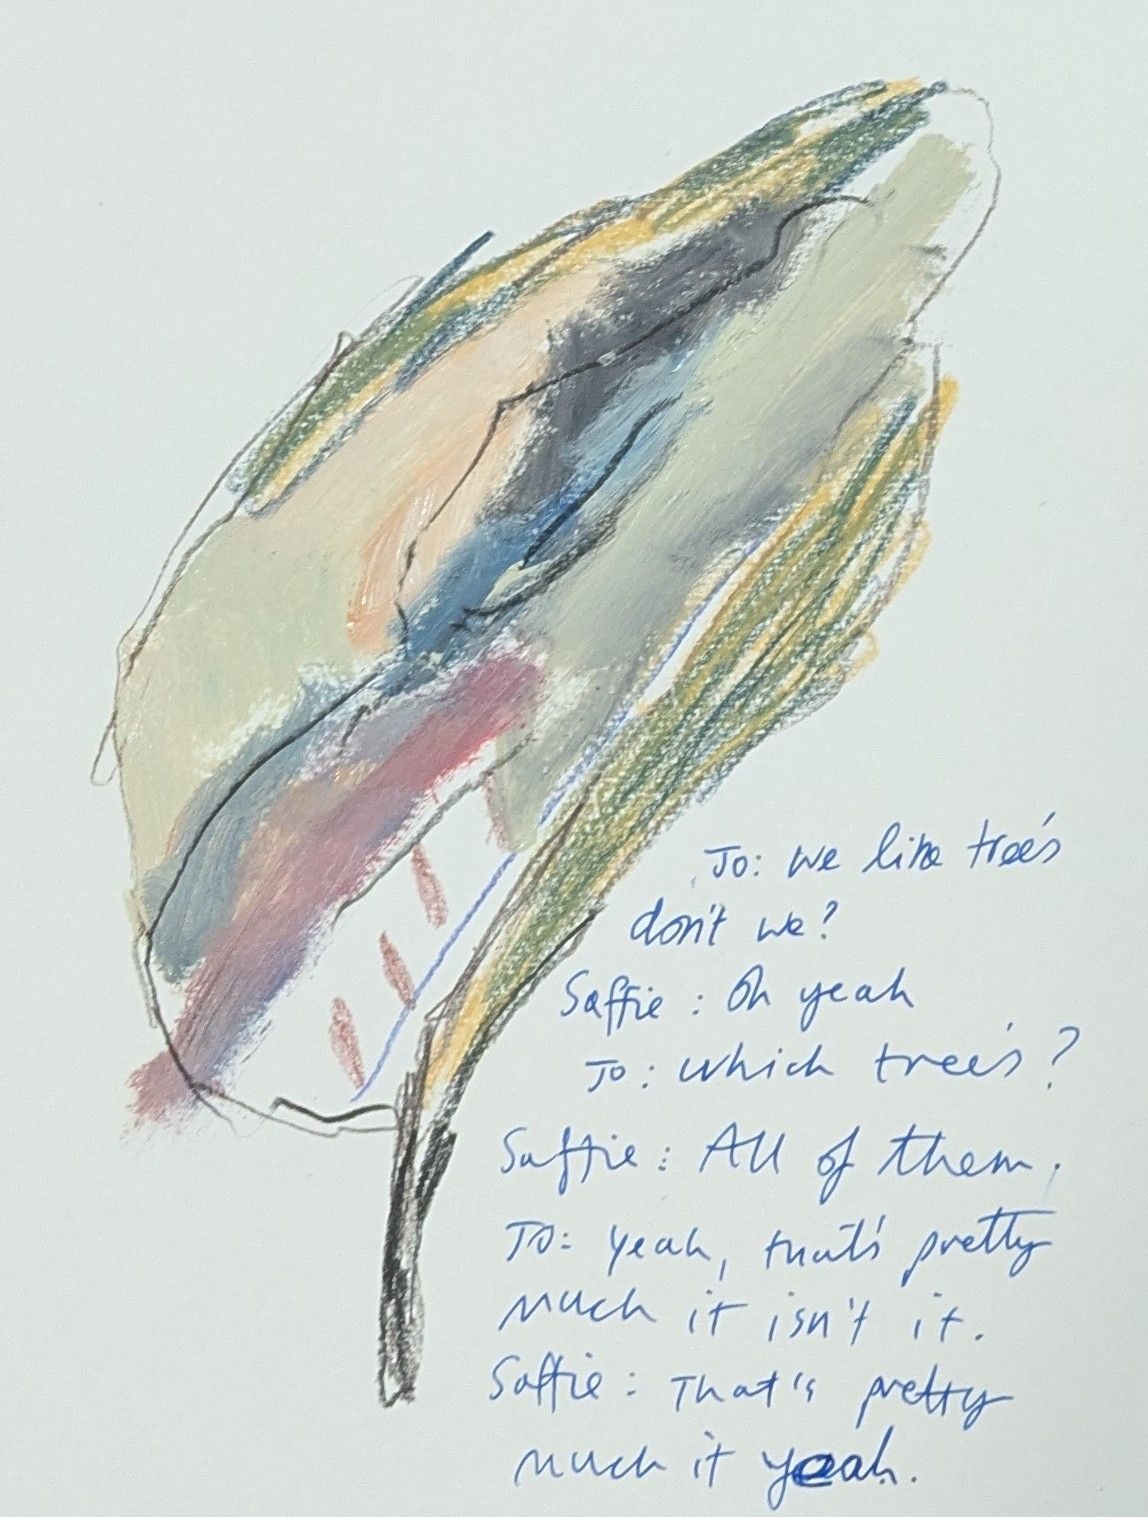 Jo: we like tree's
don't we?
Saffie: Oh yeah
Jo: which tree's?
Saffie: All of them.
Jo: Yeah, that's pretty
much it isn't it.
Saffie: That's pretty
much it yeah.